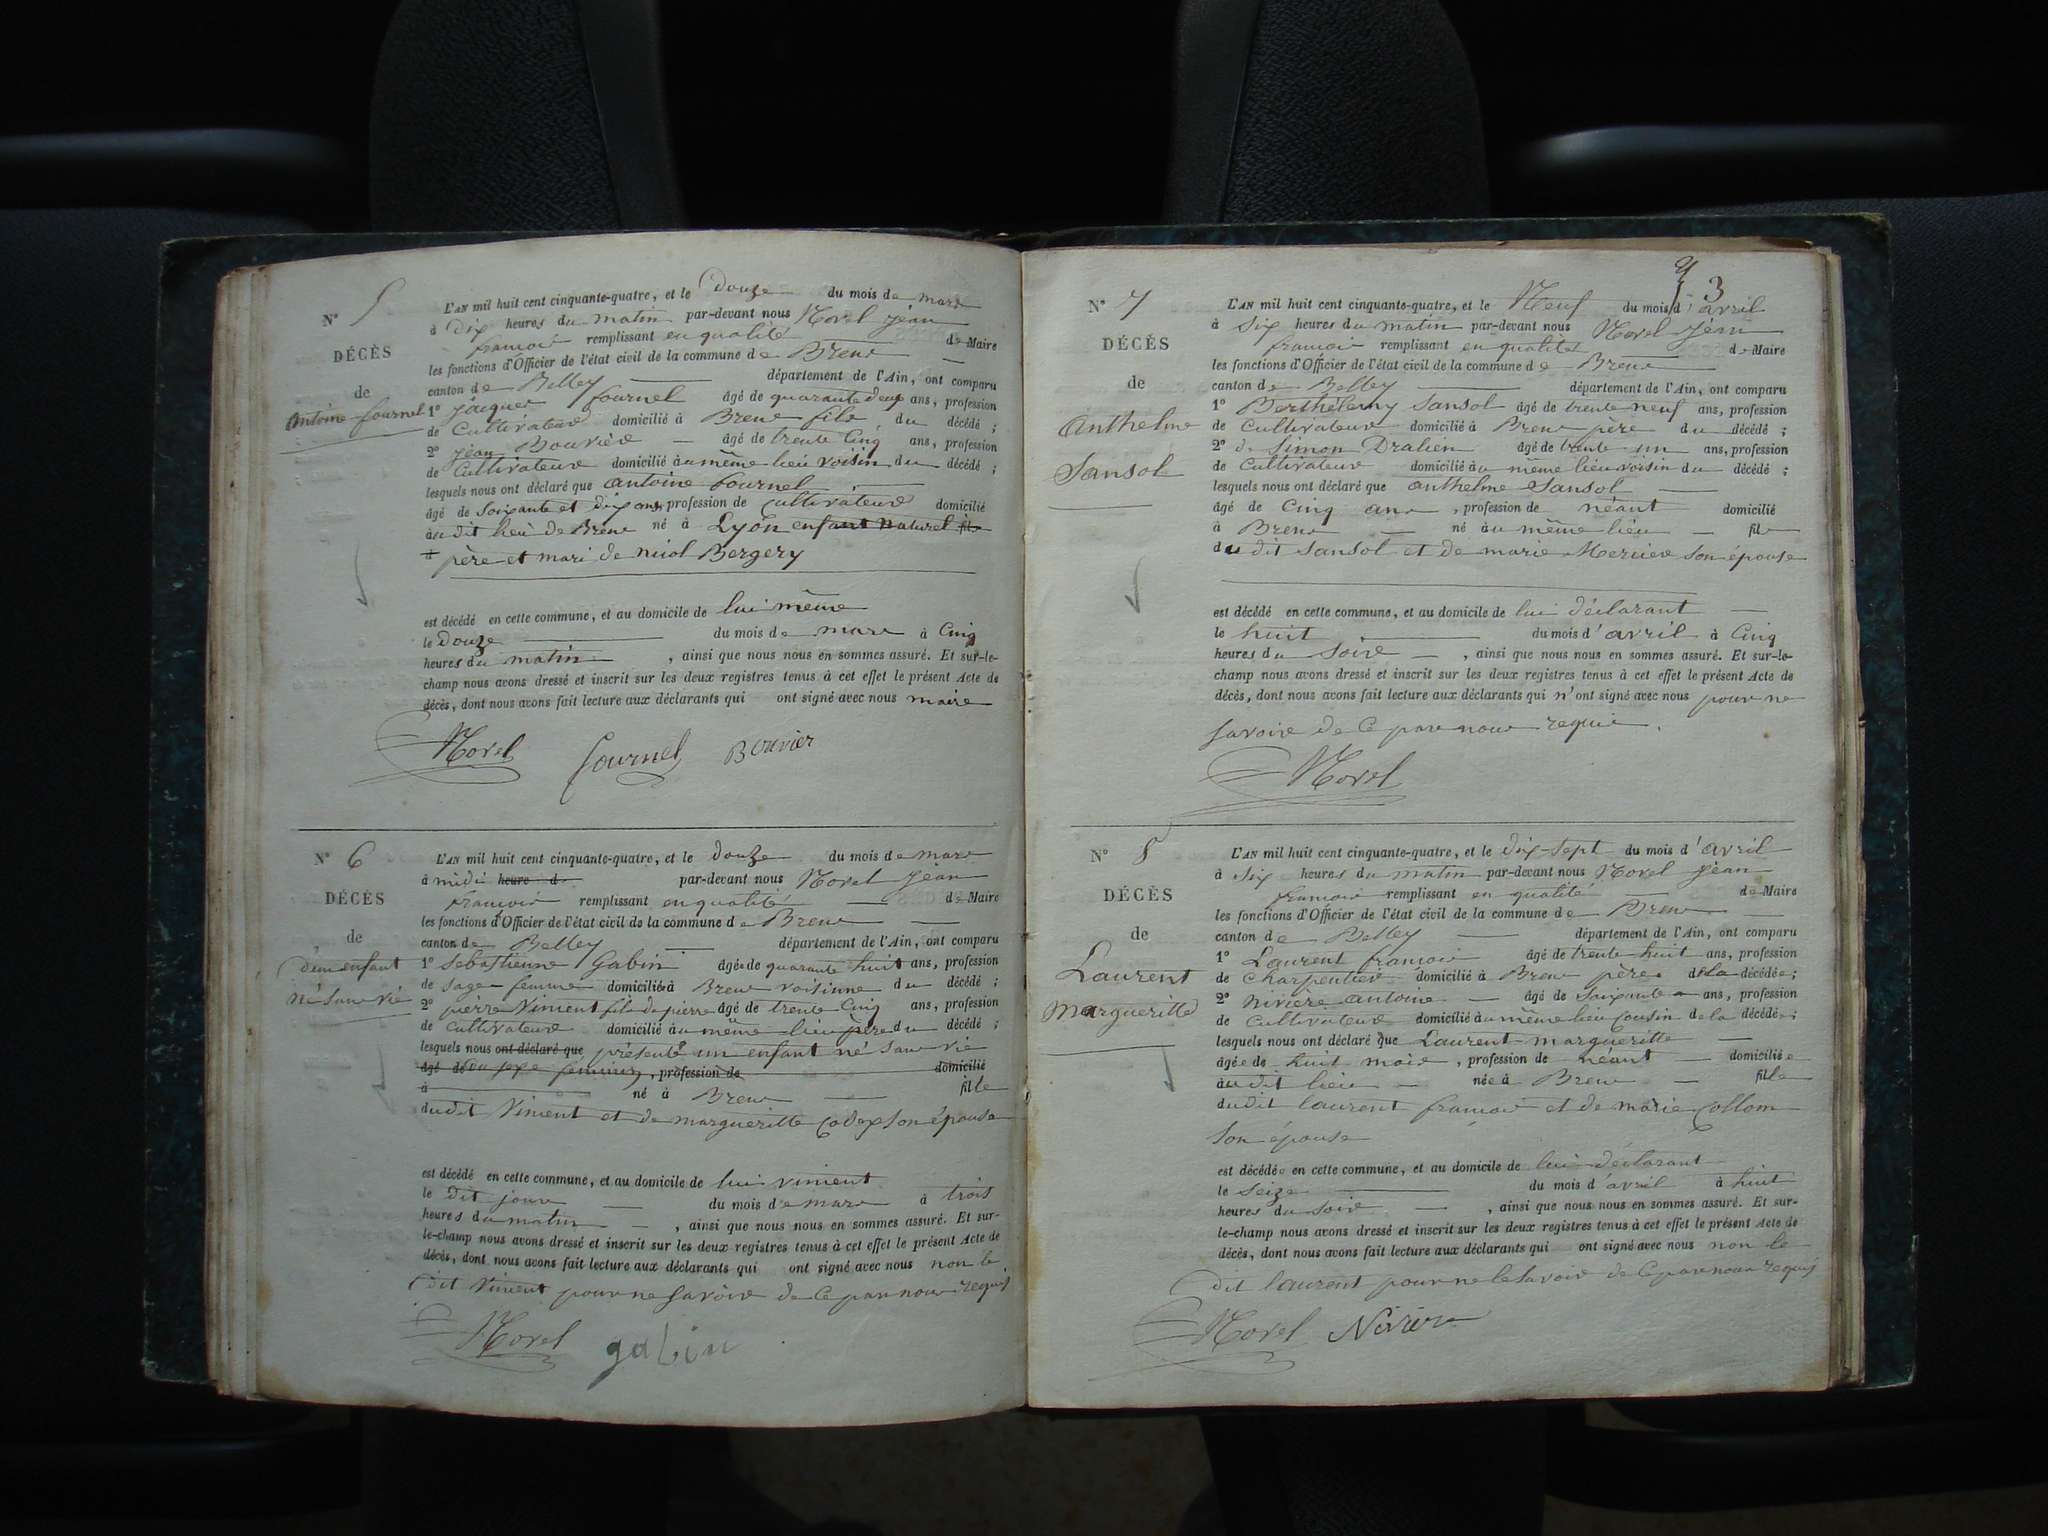 N° 5
DÉCÈS
de
Antoine fournel
L'AN mil huit cent cinquante-quatre, et le Douze du mois de mars
à Dix heures du matin par-devant nous Morel Jean
françois remplissant en qualité de Maire
les fonctions d'Officier de l'état civil de la commune de Brens
canton de Belley département de l'Ain, ont comparu
1° jacques fournel âgé de quarante deux ans, profession
de Cultivateur domicilié à Brens fils du décédé ;
2° jean Bouvier âgé de trente Cinq ans, profession
de Cultivateur domicilié au même lieu voisin du décédé ;
lesquels nous ont déclaré que antoine fournel
âgé de soixante et dix ans, profession de Cultivateur domicilié
au dit lieu de Brens né à Lyon enfant naturel fils
père et mari de nicol Bergery
est décédé en cette commune, et au domicile de lui même
le douze du mois de mars à Cinq
heures du matin , ainsi que nous nous en sommes assuré. Et sur-le-
champ nous avons dressé et inscrit sur les deux registres tenus à cet effet le présent Acte de
décès, dont nous avons fait lecture aux déclarants qui ont signé avec nous maire
Morel fournel Bouvier
N° 6
DÉCÈS
de
d'un enfant
né sans vie
L'AN mil huit cent cinquante-quatre, et le douze du mois de mars
à midi heure d par-devant nous Morel Jean
françois remplissant en qualité de Maire
les fonctions d'Officier de l'état civil de la commune de Brens
canton de Belley département de l'Ain, ont comparu
1° Sebastienne Gabin âgée de quarante huit ans, profession
de sage femme domiciliée à Brens voisinne du décédé ;
2° pierre Viment fils de pierre âgé de trente Cinq ans, profession
de Cultivateur domicilié au même lieu père du décédé ;
lesquels nous ont déclaré que présenté un enfant né sans vie
âgé de du sexe féminin, profession de domicilié
à né à Brens fille
du dit Viment et de margueritte Codex son épouse
est décédé en cette commune, et au domicile de lui viment
le dit jour du mois de mars à trois
heures du matin , ainsi que nous nous en sommes assuré. Et sur-
le-champ nous avons dressé et inscrit sur les deux registres tenus à cet effet le présent Acte de
décès, dont nous avons fait lecture aux déclarants qui ont signé avec nous non le
dit Viment pour ne savoir de Ce par nous requis
Morel gabin
3
N° 7
DÉCÈS
de
Anthelme
Sansol
L'AN mil huit cent cinquante-quatre, et le Neuf du mois d'avril
à six heures du matin par-devant nous Morel Jean
françois remplissant en qualité de Maire
les fonctions d'Officier de l'état civil de la commune de Brens
canton de Belley département de l'Ain, ont comparu
1° Berthélemy Sansol âgé de trente neuf ans, profession
de Cultivateur domicilié à Brens père du décédé ;
2° de Simon Dralien âgé de trente un ans, profession
de Cultivateur domicilié au même lieu voisin du décédé ;
lesquels nous ont déclaré que anthelme Sansol
âgé de Cinq ans , profession de néant domicilié
à Brens né au même lieu fils
du dit Sansol et de marie Mercier son épouse
est décédé en cette commune, et au domicile de lui déclarant
le huit du mois d'avril à Cinq
heures du soir , ainsi que nous nous en sommes assuré. Et sur-le-
champ nous avons dressé et inscrit sur les deux registres tenus à cet effet le présent Acte de
décès, dont nous avons fait lecture aux déclarants qui n'ont signé avec nous pour ne
savoir de Ce par nous requis.
Morel
N° 8
DÉCÈS
de
Laurent
Margueritte
L'AN mil huit cent cinquante-quatre, et le dix-sept du mois d'avril
à six heures du matin par-devant nous Morel Jean
françois remplissant en qualité de Maire
les fonctions d'Officier de l'état civil de la commune de Brens
canton de Belley département de l'Ain, ont comparu
1° Laurent françois âgé de trente huit ans, profession
de charpentier domicilié à Brens père de la décédée ;
2° nivière antoine âgé de soixante ans, profession
de Cultivateur domicilié au même lieu Cousin de la décédée ;
lesquels nous ont déclaré que Laurent margueritte
âgée de huit mois , profession de néant domiciliée
au dit lieu née à Brens fille
du dit laurent françois et de marie Collom
son épouse
est décédée en cette commune, et au domicile de lui déclarant
le seize du mois d'avril à huit
heures du soir , ainsi que nous nous en sommes assuré. Et sur-
le-champ nous avons dressé et inscrit sur les deux registres tenus à cet effet le présent Acte de
décès, dont nous avons fait lecture aux déclarants qui ont signé avec nous non le
dit laurent pour ne le savoir de Ce par nous requis
Morel Nivière